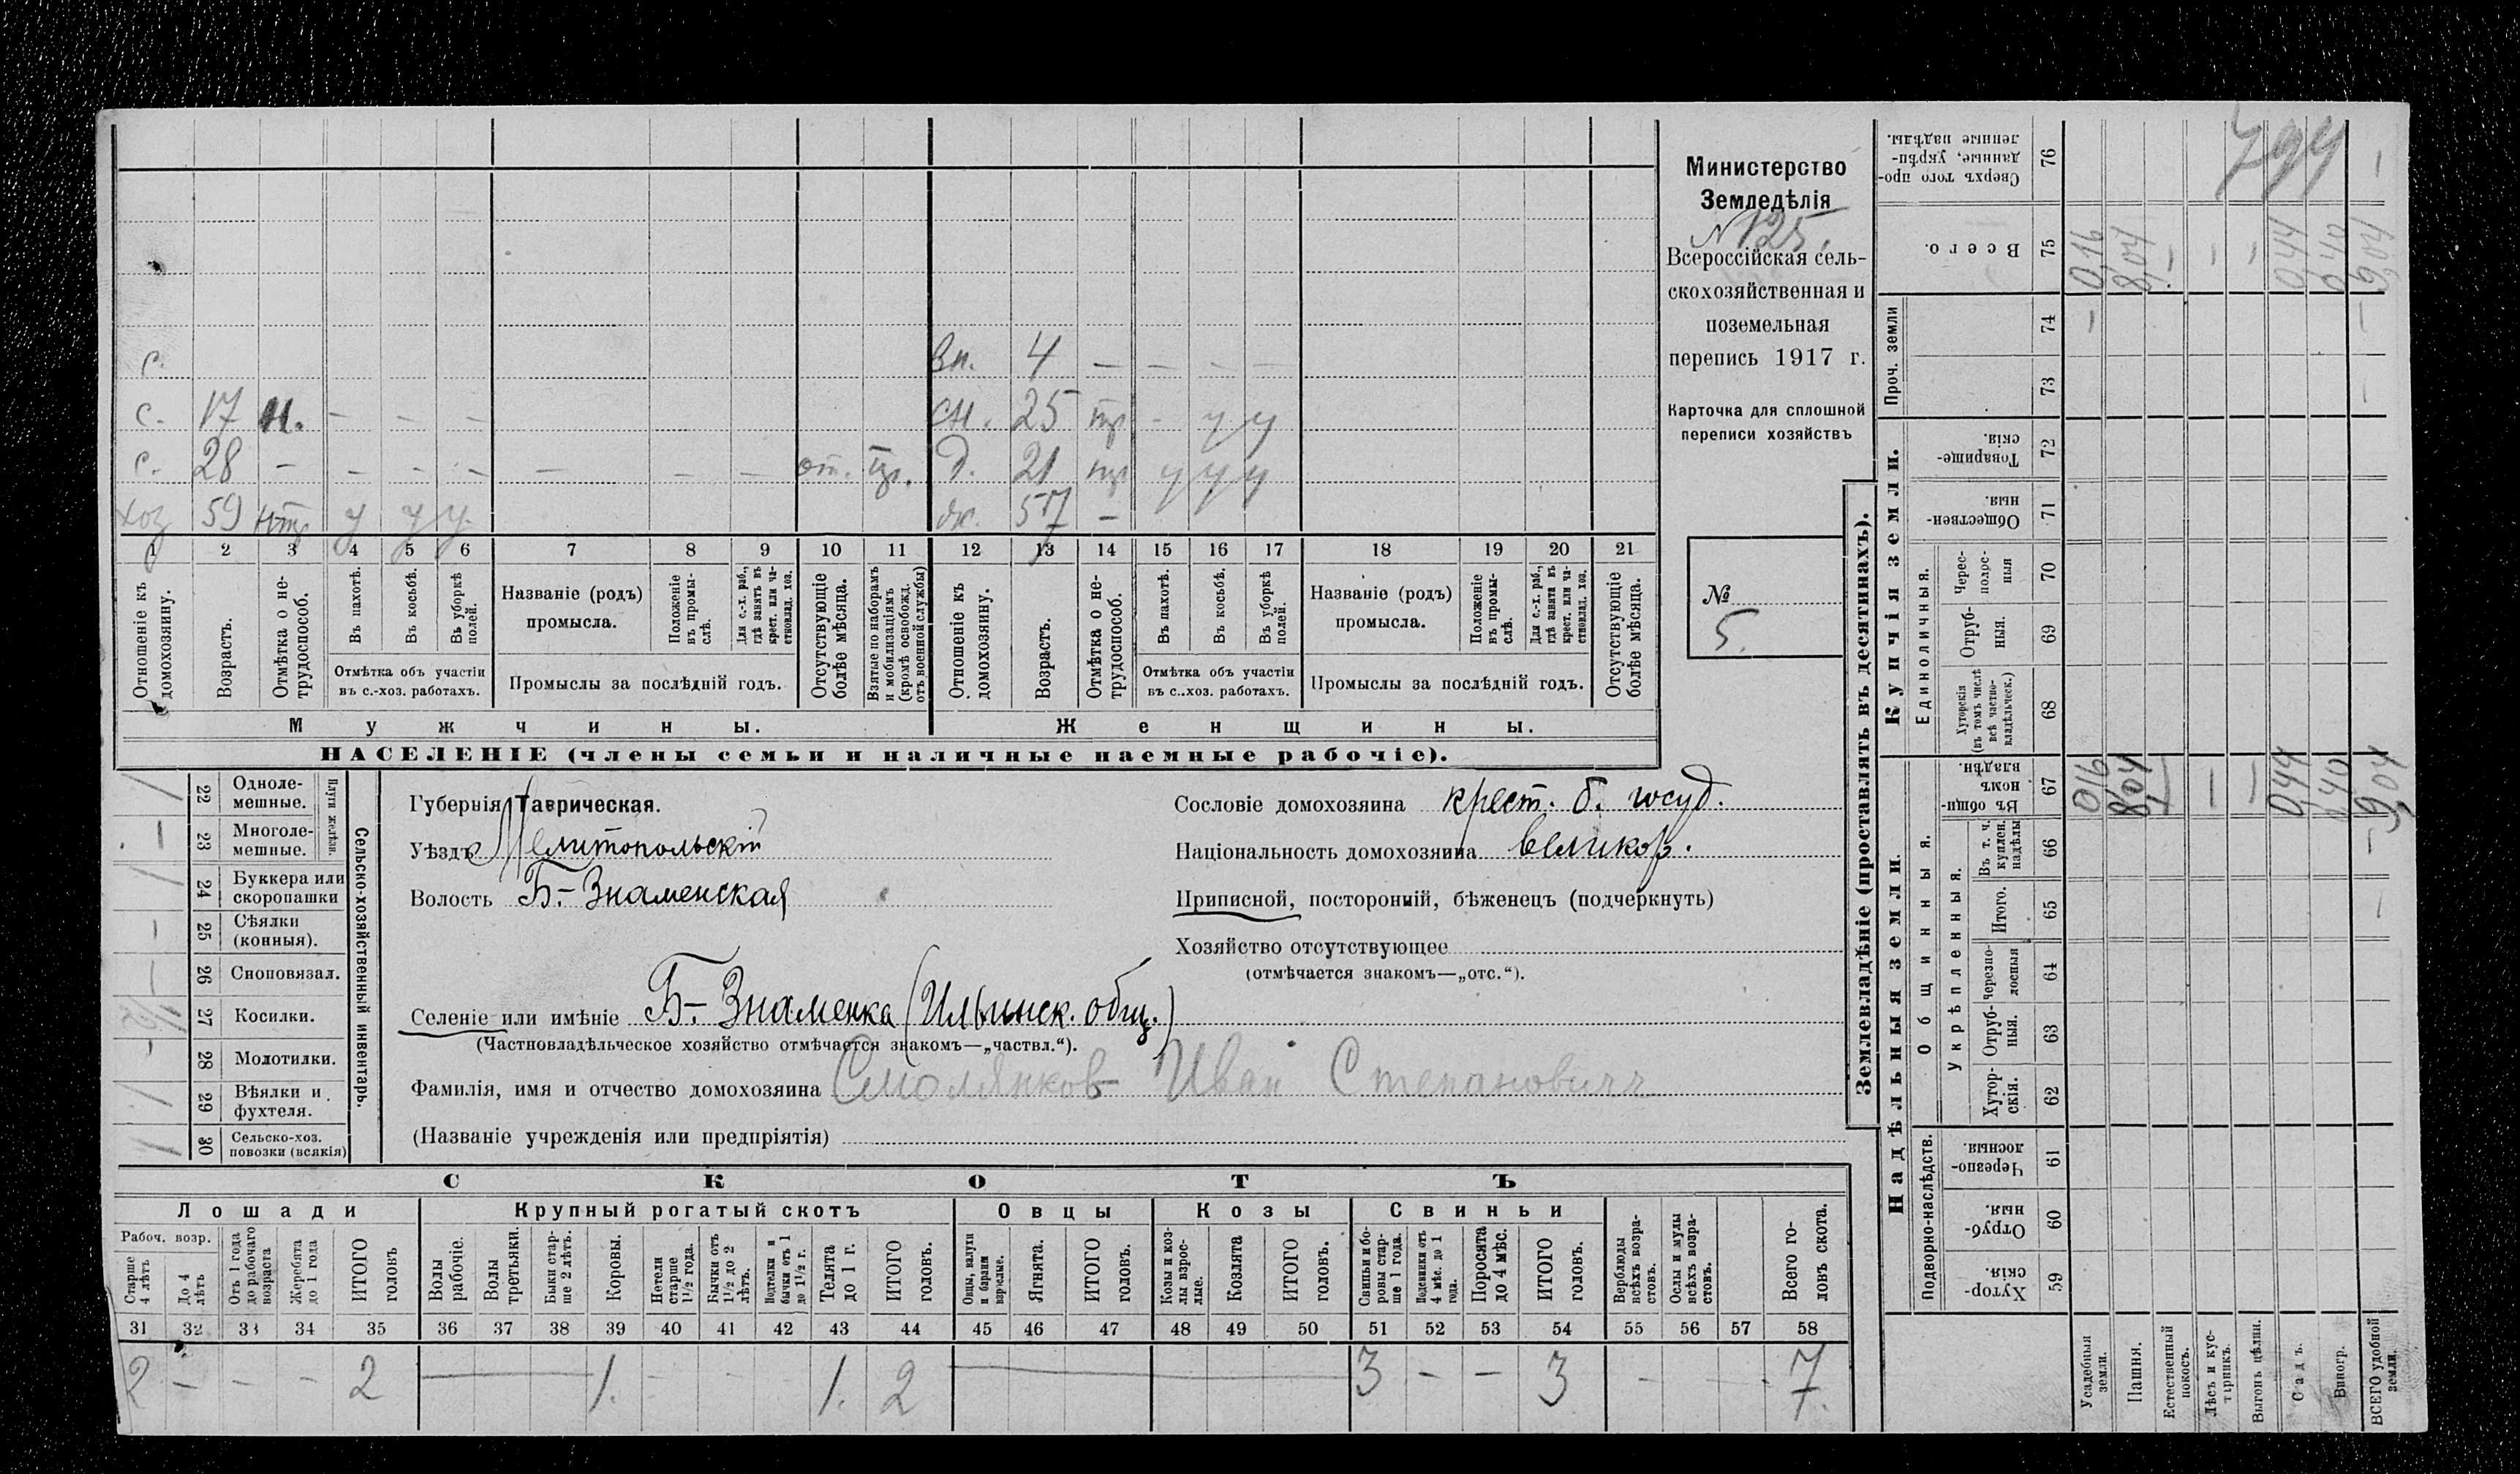 Министерство
Земледѣлія
№ 125.
Всероссійская сель-
скохозяйственная и
поземельная
перепись 1917 г.
Карточка для сплошной
переписи хозяйствъ
№
5.
с. вн. 4 — — — —
с. 17 н. — — — сн. 25 нр - у у
с. 28 — — — — — — — от. д. 21 нр у у у
хоз 59 у у у. ж. 57 —
1 2 3 4 5 6 7 8 9 10 11 12 13 14 15 16 17 18 19 20 21
Отношеніе къ домохозяину.
Возрастъ.
Отмѣтка о не-трудоспособ.
Въ пахотѣ.
Въ косьбѣ.
Въ уборкѣ полей.
Отмѣтка объ участіи
въ с.-хоз. работахъ.
Названіе (родъ)
промысла.
Положеніе въ промы-слѣ.
Для с.-х. раб., гдѣ занятъ въ крест. или ча-стновлад. хоз.
Промыслы за послѣдній годъ.
Отсутствующіе болѣе мѣсяца.
Взятые по наборамъ и мобилизаціямъ (кромѣ освобожд. отъ военной службы)
Отношеніе къ домохозяину.
Возрастъ.
Отмѣтка о не-трудоспособ.
Въ пахотѣ.
Въ косьбѣ.
Въ уборкѣ полей.
Отмѣтка объ участіи
въ с..хоз. работахъ.
Названіе (родъ)
промысла.
Положеніе въ промы-слѣ.
Для с.-х. раб., гдѣ занята въ крест. или ча-стновлад. хоз.
Промыслы за послѣдній годъ.
Отсутствующіе болѣе мѣсяца.
Мужчины. Женщины.
НАСЕЛЕНІЕ (члены семьи и наличные наемные рабочіе).
Сельско-хозяйственный инвентарь.
Плуги желѣзн.
22 Одноле-мешные. 1
23 Многоле-мешные. —
24 Буккера или скоропашки 1
25 Сѣялки (конныя). —
26 Сноповязал. —
27 Косилки. 1/2
28 Молотилки. -
29 Вѣялки и фухтеля. 1
30 Сельско-хоз. повозки (всякія) 1
Губернія Таврическая.
Уѣздъ Мелитопольскій
Волость Б.-Знаменская
Селеніе или имѣніе Б.-Знаменка (Ильинск. общ.)
(Частновладѣльческое хозяйство отмѣчается знакомъ—„частвл.“).
Фамилія, имя и отчество домохозяина Смолянковъ Иван Степановичъ
(Названіе учрежденія или предпріятія)
Сословіе домохозяина крест. б. госуд.
Національность домохозяина великор.
Приписной, посторонній, бѣженецъ (подчеркнуть)
Хозяйство отсутствующее
(отмѣчается знакомъ—„отс.“).
СКОТЪ
Лошади Крупный рогатый скотъ Овцы Козы Свиньи
Рабоч. возр.
Старше 4 лѣтъ
До 4 лѣтъ
Отъ 1 года до рабочаго возраста
Жеребята до 1 года
ИТОГО головъ
Волы рабочіе.
Волы третьяки.
Быки стар-ше 2 лѣтъ.
Коровы.
Нетели старше 1½ года.
Бычки отъ 1½ до 2 лѣтъ.
Подтелки и бычки отъ 1 до 1½ г.
Телята до 1 г.
ИТОГО головъ.
Овцы, валухи и бараны взрослые.
Ягнята.
ИТОГО головъ.
Козы и коз-лы взрос-лые.
Козлята
ИТОГО головъ.
Свиньи и бо-ровы стар-ше 1 года.
Подсвинки отъ 4 мѣс. до 1 года.
Поросята до 4 мѣс.
ИТОГО головъ.
Верблюды всѣхъ возра-стовъ.
Ослы и мулы всѣхъ возра-стовъ.
Всего го-ловъ скота.
31 32 33 34 35 36 37 38 39 40 41 42 43 44 45 46 47 48 49 50 51 52 53 54 55 56 57 58
2 — — — 2 — 1. - - - 1. 2 — 3 — — 3 - - 7.
Землевладѣніе (проставлять въ десятинахъ).
Надѣльныя земли. Купчія земли. Проч. земли
Подворно-наслѣдств.
Общинныя.
Укрѣпленныя.
Единоличныя.
59 Хутор-скія.
60 Отруб-ныя.
61 Черезпо-лосныя
62 Хутор-скія.
63 Отруб-ныя.
64 Черезпо-лосныя
65 Итого.
66 Въ т. ч. куплен. надѣлы
67 Въ общи-номъ владѣн.
68 Хуторскія (въ томъ числѣ всѣ частно-владѣльческ.)
69 Отруб-ныя.
70 Черес-полос-ныя
71 Обществен-ныя
72 Товарище-скія.
73
74
75 Всего.
76 Сверхъ того про-данные, укрѣп-ленные надѣлы.
Усадебныя земли. 0,16 — 0,16
Пашня. 8,04 8,04
Естественный покосъ. — —
Лѣсъ и кус-тарникъ. — —
Выгонъ цѣлин. — —
Садъ. 0,44 0,44
Виногр. 0,40 0,40
ВСЕГО удобной земли. — — 9,04 — — 9,04 —